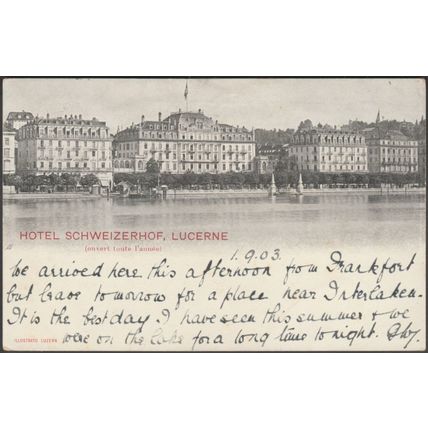 HOTEL SCHWEIZERHOF, LUCERNE
(ouvert toute l'année)
1.9.03.
We arrived here this afternoon from Frankfort
but leave tomorrow for a place near Interlaken.
It is the best day I have seen this summer & we
were on the lake for a long time tonight.
ILLUSTRATO LUZERN